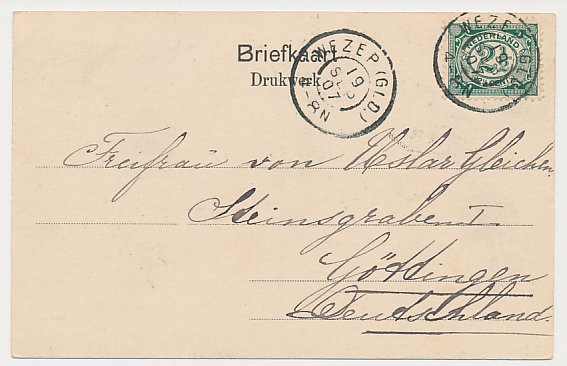 Briefkaart
Drukwerk
WEZEP (GLD)
19
SEP
07
4-8N
WEZEP (GLD)
NEDERLAND
2½
CENT
Freifrau von Uslar Gleichen
Steinsgraben 1
Göttingen
Deutschland.